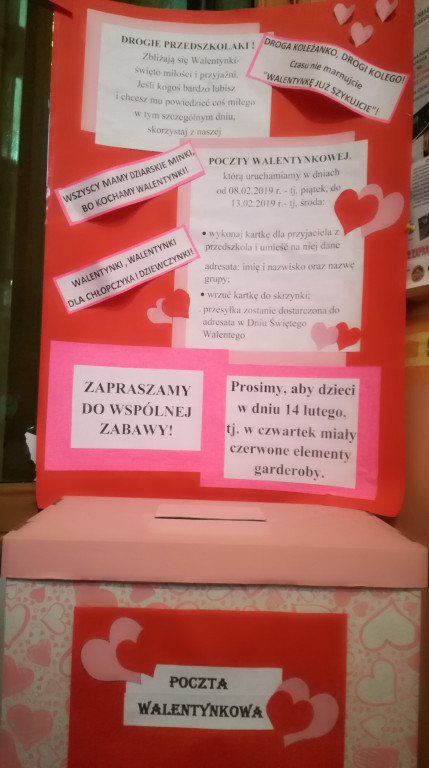 DROGIE PRZEDSZKOLAKI !
Zbliżają się Walentynki-
święto miłości i przyjaźni.
Jeśli kogoś bardzo lubisz
i chcesz mu powiedzieć coś miłego
w tym szczególnym dniu,
skorzystaj z naszej
DROGA KOLEŻANKO, DROGI KOLEGO!
Czasu nie marnujcie
"WALENTYNKĘ JUŻ SZYKUJCIE"!
WSZYSCY MAMY DZIARSKIE MINKI,
BO KOCHAMY WALENTYNKI!
POCZTY WALENTYNKOWEJ,
którą uruchamiamy w dniach
od 08.02.2019 - tj. piątek, do
13.02.2019 r.- tj, środa:
• wykonaj kartkę dla przyjaciela z
przedszkola i umieść na niej dane
adresata: imię i nazwisko oraz nazwę
grupy;
• wrzuć kartkę do skrzynki;
przesyłka zostanie dostarczona do
adresata w Dniu Świętego
Walentego
WALENTYNKI , WALENTYNKI
DLA CHŁOPCZYKA I DZIEWCZYNKI!
ZAPRASZAMY
DO WSPÓLNEJ
ZABAWY!
Prosimy, aby dzieci
w dniu 14 lutego,
tj. w czwartek miały
czerwone elementy
garderoby.
POCZTA
WALENTYNKOWA